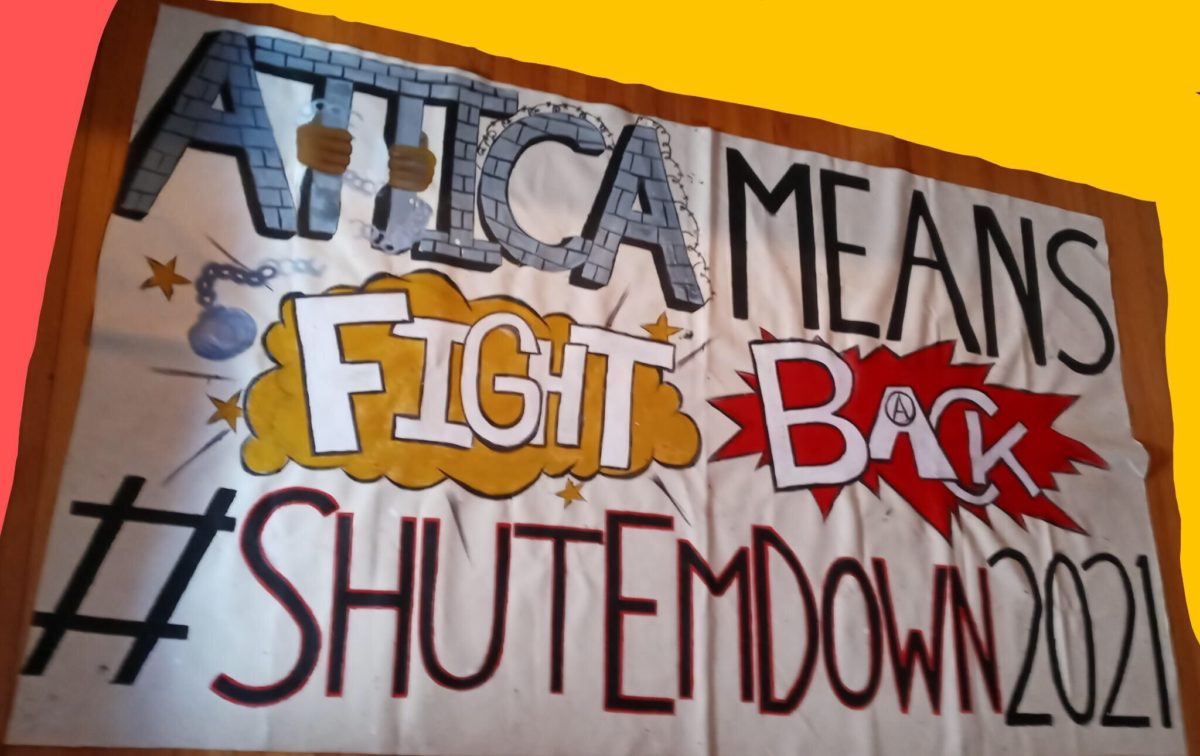 ATTICA MEANS
FIGHT BACK
#SHUTEMDOWN2021